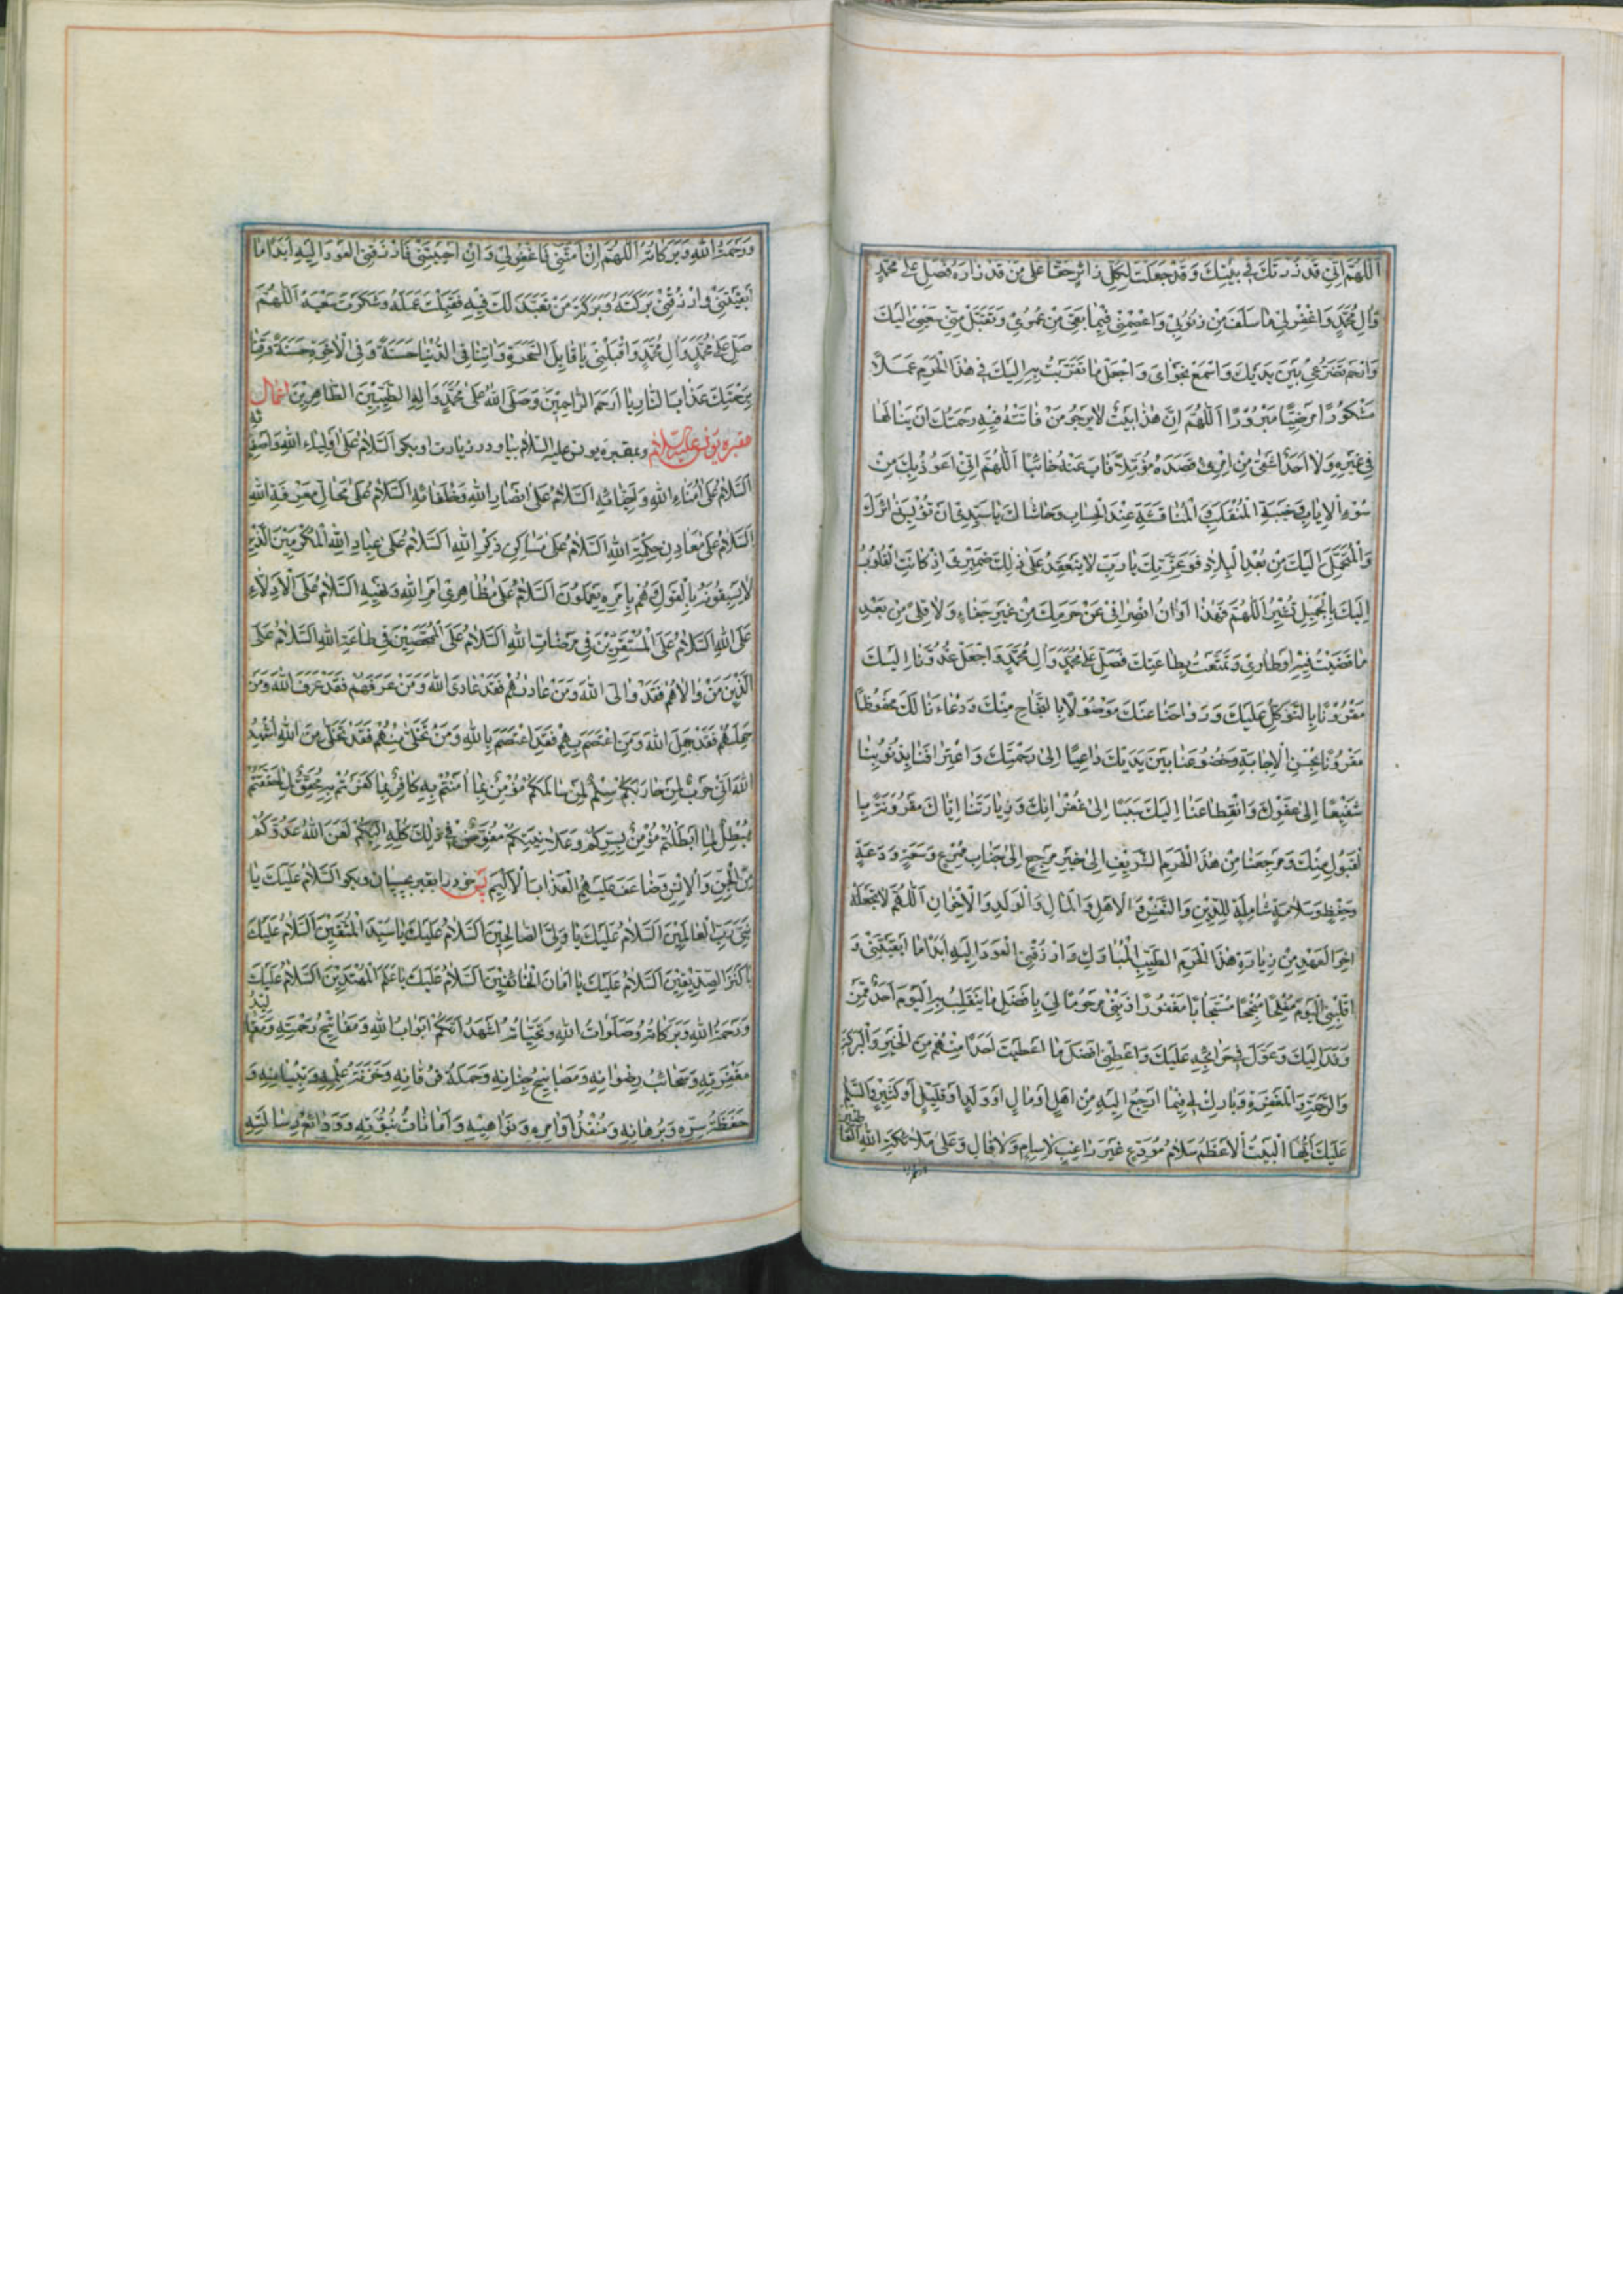 اَللّهُمَّ اِنّی قَد زُرتُكَ فی بَیتِكَ وَ قَد جَعَلتَ لِكُلِّ زائِرٍ حَقًّا عَلی مَن قَد زارَهُ فَصَلِّ عَلی مُحَمَّدٍ
وَ الِ مُحَمَّدٍ وَ اغفِر لی ما سَلَفَ مِن ذُنُوبی وَ اعصِمنی فیما بَقِیَ مِن عُمُری وَ تَقَبَّل مِنّی سَعیی اِلَیكَ
وَ ارحَم تَضَرُّعی بَینَ یَدَیكَ وَ اسمَع نَجوایَ وَ اجعَل ما تَقَرَّبتُ بِهِ اِلَیكَ فی هذَا الحَرَمِ عَمَلاً
مَشكُورًا مَرضِیًّا مَبرُورًا اَللّهُمَّ اِنَّ هذا بَیتٌ لا یَرجُو مَن فاتَتهُ فیهِ رَحمَتُكَ اَن یَنالَها
فی غَیرِهِ وَ لا اَحَدٌ اَشقی مِن امرِئٍ قَصَدَهُ مُؤَمِّلاً فَابَ عَنهُ خائِبًا اَللّهُمَّ اِنّی اَعُوذُ بِكَ مِن
سُوءِ الاِیابِ وَ خَیبَةِ المُنقَلَبِ وَ المُناقَشَةِ عِندَ الحِسابِ وَ حاشاكَ یا سَیِّدی اَن
وَ المُتَحَمَّلَ اِلَیكَ مِن بُعدِ البِلادِ فَوَعِزَّتِكَ یا رَبِّ لا یَنعَقِدُ عَلی ذلِكَ ضَمیری اِذ كانَتِ القُلُوبُ
اِلَیكَ بِالجَمیلِ تُشیرُ اَللّهُمَّ فَهذا اَوانُ انصِرافی عَن حَرَمِكَ مِن غَیرِ جَفاءٍ وَ لا قِلیً مِن بَعدِ
ما قَضَیتُ فیهِ اَوطاری وَ تَمَتَّعتُ بِطاعَتِكَ فَصَلِّ عَلی مُحَمَّدٍ وَ الِ مُحَمَّدٍ وَ اجعَل غُدُوَّنا اِلَیكَ
مَقرُونًا بِالتَّوَكُّلِ عَلَیكَ وَ رَواحَنا عَنكَ مَوصُولاً بِالنَّجاحِ مِنكَ وَ دُعاءَنا لَكَ مَحفُوظًا
مَقرُونًا بِحُسنِ الاِجابَةِ وَ خُضُوعَنا بَینَ یَدَیكَ داعِیًا اِلی رَحمَتِكَ وَ اعتِرافَنا بِذُنُوبِنا
شَفیعًا اِلی عَفوِكَ وَ انقِطاعَنا اِلَیكَ سَبَبًا اِلی غُفرانِكَ وَ زِیارَتَنا اِیّاكَ مَقرُونَةً بِا
لقَبُولِ مِنكَ وَ مَرجِعَنا مِن هذَا الحَرَمِ الشَّریفِ اِلی خَیرِ مَرجِعٍ اِلی جَنابٍ مُمرِعٍ وَ سَعَةٍ وَ دَعَةٍ
وَ حِفظٍ وَ سَلامَةٍ شامِلَةٍ لِلدّینِ وَ النَّفسِ وَ الاَهلِ وَ المالِ وَ الوَلَدِ وَ الاِخوانِ اَللّهُمَّ لا تَجعَلهُ
اخِرَ العَهدِ مِن زِیارَةِ هذَا الحَرَمِ الطَّیِّبِ المُبارَكِ وَ ارزُقنِی العَودَ اِلَیهِ اَبَدًا ما اَبقَیتَنی وَ
اقلِبنِی الیَومَ مُفلِحًا مُنجِحًا مُستَجابًا مَغفُورًا ذَنبی مَرحُومًا لی بِاَفضَلِ ما یَنقَلِبُ بِهِ الیَومَ اَحَدٌ مِمَّن
وَفَدَ اِلَیكَ وَ عَوَّلَ فی حَوائِجِهِ عَلَیكَ وَ اَعطِنی اَفضَلَ ما اَعطَیتَ اَحَدًا مِنهُم مِنَ الخَیرِ وَ البَرَكَةِ
وَ الرَّحمَةِ وَ المَغفِرَةِ وَ بارِك لی فیما اَرجِعُ اِلَیهِ مِن اَهلٍ اَو مالٍ اَو وَلَدٍ اَو قَلیلٍ اَو كَثیرٍ وَ السَّلامُ
عَلَیكَ اَیُّهَا البَیتُ الاَعظَمُ سَلامُ مُوَدِّعٍ غَیرَ راغِبٍ لا سامٍ وَ لا قالٍ وَ عَلی مَلائِكَةِ اللهِ القاطِنینَ
وَ رَحمَةُ اللهِ وَ بَرَكاتُهُ اَللّهُمَّ اِن اَمَتَّنی فَاغفِر لی وَ اِن اَحیَیتَنی فَارزُقنِی العَودَ اِلَیهِ اَبَدًا ما
اَبقَیتَنی وَ ارزُقنی بَرَكَتَهُ وَ بَرَكَةَ مَن تَعَبَّدَ لَكَ فیهِ فَقَبِلتَ عَمَلَهُ وَ شَكَرتَ سَعیَهُ اَللّهُمَّ
صَلِّ عَلی مُحَمَّدٍ وَ الِ مُحَمَّدٍ وَ اقبَلنی یا قابِلَ السَّحَرَةِ وَ اتِنا فِی الدُّنیا حَسَنَةً وَ فِی الاخِرَةِ حَسَنَةً وَ قِنا
بِرَحمَتِكَ عَذابَ النّارِ یا اَرحَمَ الرّاحِمینَ وَ صَلَّی اللهُ عَلی مُحَمَّدٍ وَ الِهِ الطَّیِّبینَ الطّاهِرینَ اعمال
مقبره یونس علیه السلام و بمقبره یونس علیه السلام بیا و در زیارت او بكو اَلسَّلامُ عَلی اَولِیاءِ اللهِ وَ اَصفِیائِهِ
اَلسَّلامُ عَلی اُمَناءِ اللهِ وَ اَحِبّائِهِ اَلسَّلامُ عَلی اَنصارِ اللهِ وَ خُلَفائِهِ اَلسَّلامُ عَلی مَحالِّ مَعرِفَةِ اللهِ
اَلسَّلامُ عَلی مَعادِنِ حِكمَةِ اللهِ اَلسَّلامُ عَلی مَساكِنِ ذِكرِ اللهِ اَلسَّلامُ عَلی عِبادِ اللهِ المُكرَمینَ الَّذینَ
لا یَسبِقُونَهُ بِالقَولِ وَ هُم بِاَمرِهِ یَعمَلُونَ اَلسَّلامُ عَلی مُظاهِری اَمرِ اللهِ وَ نَهیِهِ اَلسَّلامُ عَلَی الاَدِلّاءِ
عَلَی اللهِ اَلسَّلامُ عَلَی المُستَقِرّینَ فی مَرضاتِ اللهِ اَلسَّلامُ عَلَی المُمَحَّصینَ فی طاعَةِ اللهِ اَلسَّلامُ عَلَی
الَّذینَ مَن والاهُم فَقَد والَی اللهَ وَ مَن عاداهُم فَقَد عادَی اللهَ وَ مَن عَرَفَهُم فَقَد عَرَفَ اللهَ وَ مَن
جَهِلَهُم فَقَد جَهِلَ اللهَ وَ مَنِ اعتَصَمَ بِهِم فَقَدِ اعتَصَمَ بِاللهِ وَ مَن تَخَلّی مِنهُم فَقَد تَخَلّی مِنَ اللهِ اُشهِدُ
اللهَ اَنّی حَربٌ لِمَن حارَبَكُم سِلمٌ لِمَن سالَمَكُم مُؤمِنٌ بِما امَنتُم بِهِ كافِرٌ بِما كَفَرتُم بِهِ مُحَقِّقٌ لِما حَقَّقتُم
مُبطِلٌ لِما اَبطَلتُم مُؤمِنٌ بِسِرِّكُم وَ عَلانِیَتِكُم مُفَوِّضٌ فی ذلِكَ كُلِّهِ اِلَیكُم لَعَنَ اللهُ عَدُوَّكُم
مِنَ الجِنِّ وَ الاِنسِ وَ ضاعَفَ عَلَیهِمُ العَذابَ الاَلیمَ پس خود را بقبر بچسبان و بكو اَلسَّلامُ عَلَیكَ یا
نَبِیَّ رَبِّ العالَمینَ اَلسَّلامُ عَلَیكَ یا وَلِیَّ الصّالِحینَ اَلسَّلامُ عَلَیكَ یا سَیِّدَ المُتَّقینَ اَلسَّلامُ عَلَیكَ
یا كَنزَ الصِّدّیقینَ اَلسَّلامُ عَلَیكَ یا اَمانَ الخائِفینَ اَلسَّلامُ عَلَیكَ یا عَلَمَ المُهتَدینَ اَلسَّلامُ عَلَیكَ
وَ رَحمَةُ اللهِ وَ بَرَكاتُهُ وَ صَلَواتُ اللهِ وَ تَحِیّاتُهُ اَشهَدُ اَنَّكُم اَبوابُ اللهِ وَ مَفاتیحُ رَحمَتِهِ وَ مَقالیدُ
مَغفِرَتِهِ وَ سَحائِبُ رِضوانِهِ وَ مَصابیحُ جِنانِهِ وَ حَمَلَةُ فُرقانِهِ وَ خَزَنَةُ عِلمِهِ وَ
حَفَظَةُ سِرِّهِ وَ بُرهانِهِ وَ مُنفِذُ اَوامِرِهِ وَ نَواهیهِ وَ اَماناتُ نُبُوَّتِهِ وَ وَدائِعُ رِسالَتِهِ